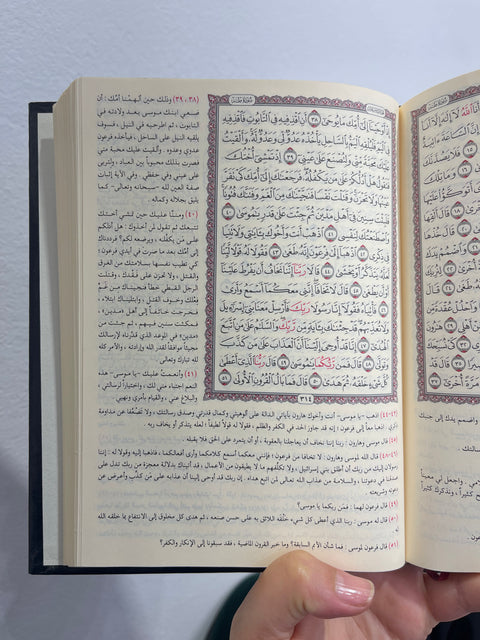 سُورَةُ طه
إِذْ أَوْحَيْنَا إِلَىٰ أُمِّكَ مَا يُوحَىٰ ٣٨ أَنِ اقْذِفِيهِ فِي التَّابُوتِ فَاقْذِفِيهِ
فِي الْيَمِّ فَلْيُلْقِهِ الْيَمُّ بِالسَّاحِلِ يَأْخُذْهُ عَدُوٌّ لِّي وَعَدُوٌّ لَّهُ وَأَلْقَيْتُ
عَلَيْكَ مَحَبَّةً مِّنِّي وَلِتُصْنَعَ عَلَىٰ عَيْنِي ٣٩ إِذْ تَمْشِي أُخْتُكَ
فَتَقُولُ هَلْ أَدُلُّكُمْ عَلَىٰ مَن يَكْفُلُهُ فَرَجَعْنَاكَ إِلَىٰ أُمِّكَ كَيْ تَقَرَّ
عَيْنُهَا وَلَا تَحْزَنَ وَقَتَلْتَ نَفْسًا فَنَجَّيْنَاكَ مِنَ الْغَمِّ وَفَتَنَّاكَ فُتُونًا
فَلَبِثْتَ سِنِينَ فِي أَهْلِ مَدْيَنَ ثُمَّ جِئْتَ عَلَىٰ قَدَرٍ يَا مُوسَىٰ ٤٠
وَاصْطَنَعْتُكَ لِنَفْسِي ٤١ اذْهَبْ أَنتَ وَأَخُوكَ بِآيَاتِي وَلَا تَنِيَا
فِي ذِكْرِي ٤٢ اذْهَبَا إِلَىٰ فِرْعَوْنَ إِنَّهُ طَغَىٰ ٤٣ فَقُولَا لَهُ قَوْلًا لَّيِّنًا
لَّعَلَّهُ يَتَذَكَّرُ أَوْ يَخْشَىٰ ٤٤ قَالَا رَبَّنَا إِنَّنَا نَخَافُ أَن يَفْرُطَ عَلَيْنَا
أَوْ أَن يَطْغَىٰ ٤٥ قَالَ لَا تَخَافَا إِنَّنِي مَعَكُمَا أَسْمَعُ وَأَرَىٰ
٤٦ فَأْتِيَاهُ فَقُولَا إِنَّا رَسُولَا رَبِّكَ فَأَرْسِلْ مَعَنَا بَنِي إِسْرَائِيلَ
وَلَا تُعَذِّبْهُمْ قَدْ جِئْنَاكَ بِآيَةٍ مِّن رَّبِّكَ وَالسَّلَامُ عَلَىٰ مَنِ اتَّبَعَ
الْهُدَىٰ ٤٧ إِنَّا قَدْ أُوحِيَ إِلَيْنَا أَنَّ الْعَذَابَ عَلَىٰ مَن كَذَّبَ
وَتَوَلَّىٰ ٤٨ قَالَ فَمَن رَّبُّكُمَا يَا مُوسَىٰ ٤٩ قَالَ رَبُّنَا الَّذِي أَعْطَىٰ
كُلَّ شَيْءٍ خَلْقَهُ ثُمَّ هَدَىٰ ٥٠ قَالَ فَمَا بَالُ الْقُرُونِ الْأُولَىٰ ٥١
٣١٤
(٣٨، ٣٩) وذلك حين ألهمْنا أمَّك: أن
ضعي ابنك موسى بعد ولادته في
التابوت، ثم اطرحيه في النيل، فسوف
يلقيه النيل على الساحل، فيأخذه فرعون
عدوي وعدوه. وألقيت عليك محبة مني
فصرت بذلك محبوباً بين العباد، ولتربى
على عيني وفي حفظي. وفي الآية إثبات
صفة العين لله -سبحانه وتعالى- كما
يليق بجلاله وكماله.
(٤٠) ومننَّا عليك حين تمشي أختك
تتبعك ثم تقول لمن أخذوك: هل أدلكم
على مَن يكْفُله، ويرضعه لكم؟ فرددناك
إلى أمك بعد ما صرت في أيدي فرعون؛
كي تطيب نفسها بسلامتك من الغرق
والقتل، ولا تحزن على فَقْدك، وقتلت
الرجل القبطي خطأ فنجيناك من غَمِّ
فِعْلك وخوف القتل، وابتليناك ابتلاء،
فخرجت خائفاً إلى أهل «مدين»،
فمكثت سنين فيهم، ثم جئت من
«مدين» في الموعد الذي قدَّرناه لإرسالك
مجيئاً موافقاً لقدر الله وإرادته، والأمر كله
لله تبارك وتعالى.
(٤١) وأنعمتُ عليك -يا موسى- هذه
النعم اجتباء مني لك، واختياراً لرسالتي،
والبلاغ عني، والقيام بأمري ونهيي.
(٤٢-٤٤) اذهب -يا موسى- أنت وأخوك هارون بآياتي الدالة على ألوهيتي وكمال قدرتي وصدق رسالتك، ولا تَضْعُفا عن مداومة
ذكري. اذهبا معاً إلى فرعون؛ إنه قد جاوز الحد في الكفر والظلم، فقولا له قولاً لطيفاً؛ لعله يتذكر أو يخاف ربه.
(٤٥) قال موسى وهارون: ربنا إننا نخاف أن يعاجلنا بالعقوبة، أو أن يتمرد على الحق فلا يقبله.
(٤٦-٤٨) قال الله لموسى وهارون: لا تخافا من فرعون؛ فإنني معكما أسمع كلامكما وأرى أفعالكما، فاذهبا إليه وقولا له: إننا
رسولان إليك من ربك أن أطلق بني إسرائيل، ولا تكلِّفهم ما لا يطيقون من الأعمال، قد أتيناك بدلالة معجزة من ربك تدل على
صدقنا في دعوتنا، والسلامة من عذاب الله تعالى لمن اتبع هداه. إن ربك قد أوحى إلينا أن عذابه على مَن كذَّب وأعرض عن
دعوته وشريعته.
(٤٩) قال فرعون لهما: فمن ربكما يا موسى؟
(٥٠) قال له موسى: ربنا الذي أعطى كل شيء خَلْقَه اللائق به على حسن صنعه، ثم هدى كل مخلوق إلى الانتفاع بما خلقه الله
له.
(٥١) قال فرعون لموسى: فما شأن الأمم السابقة؟ وما خبر القرون الماضية، فقد سبقونا إلى الإنكار والكفر؟